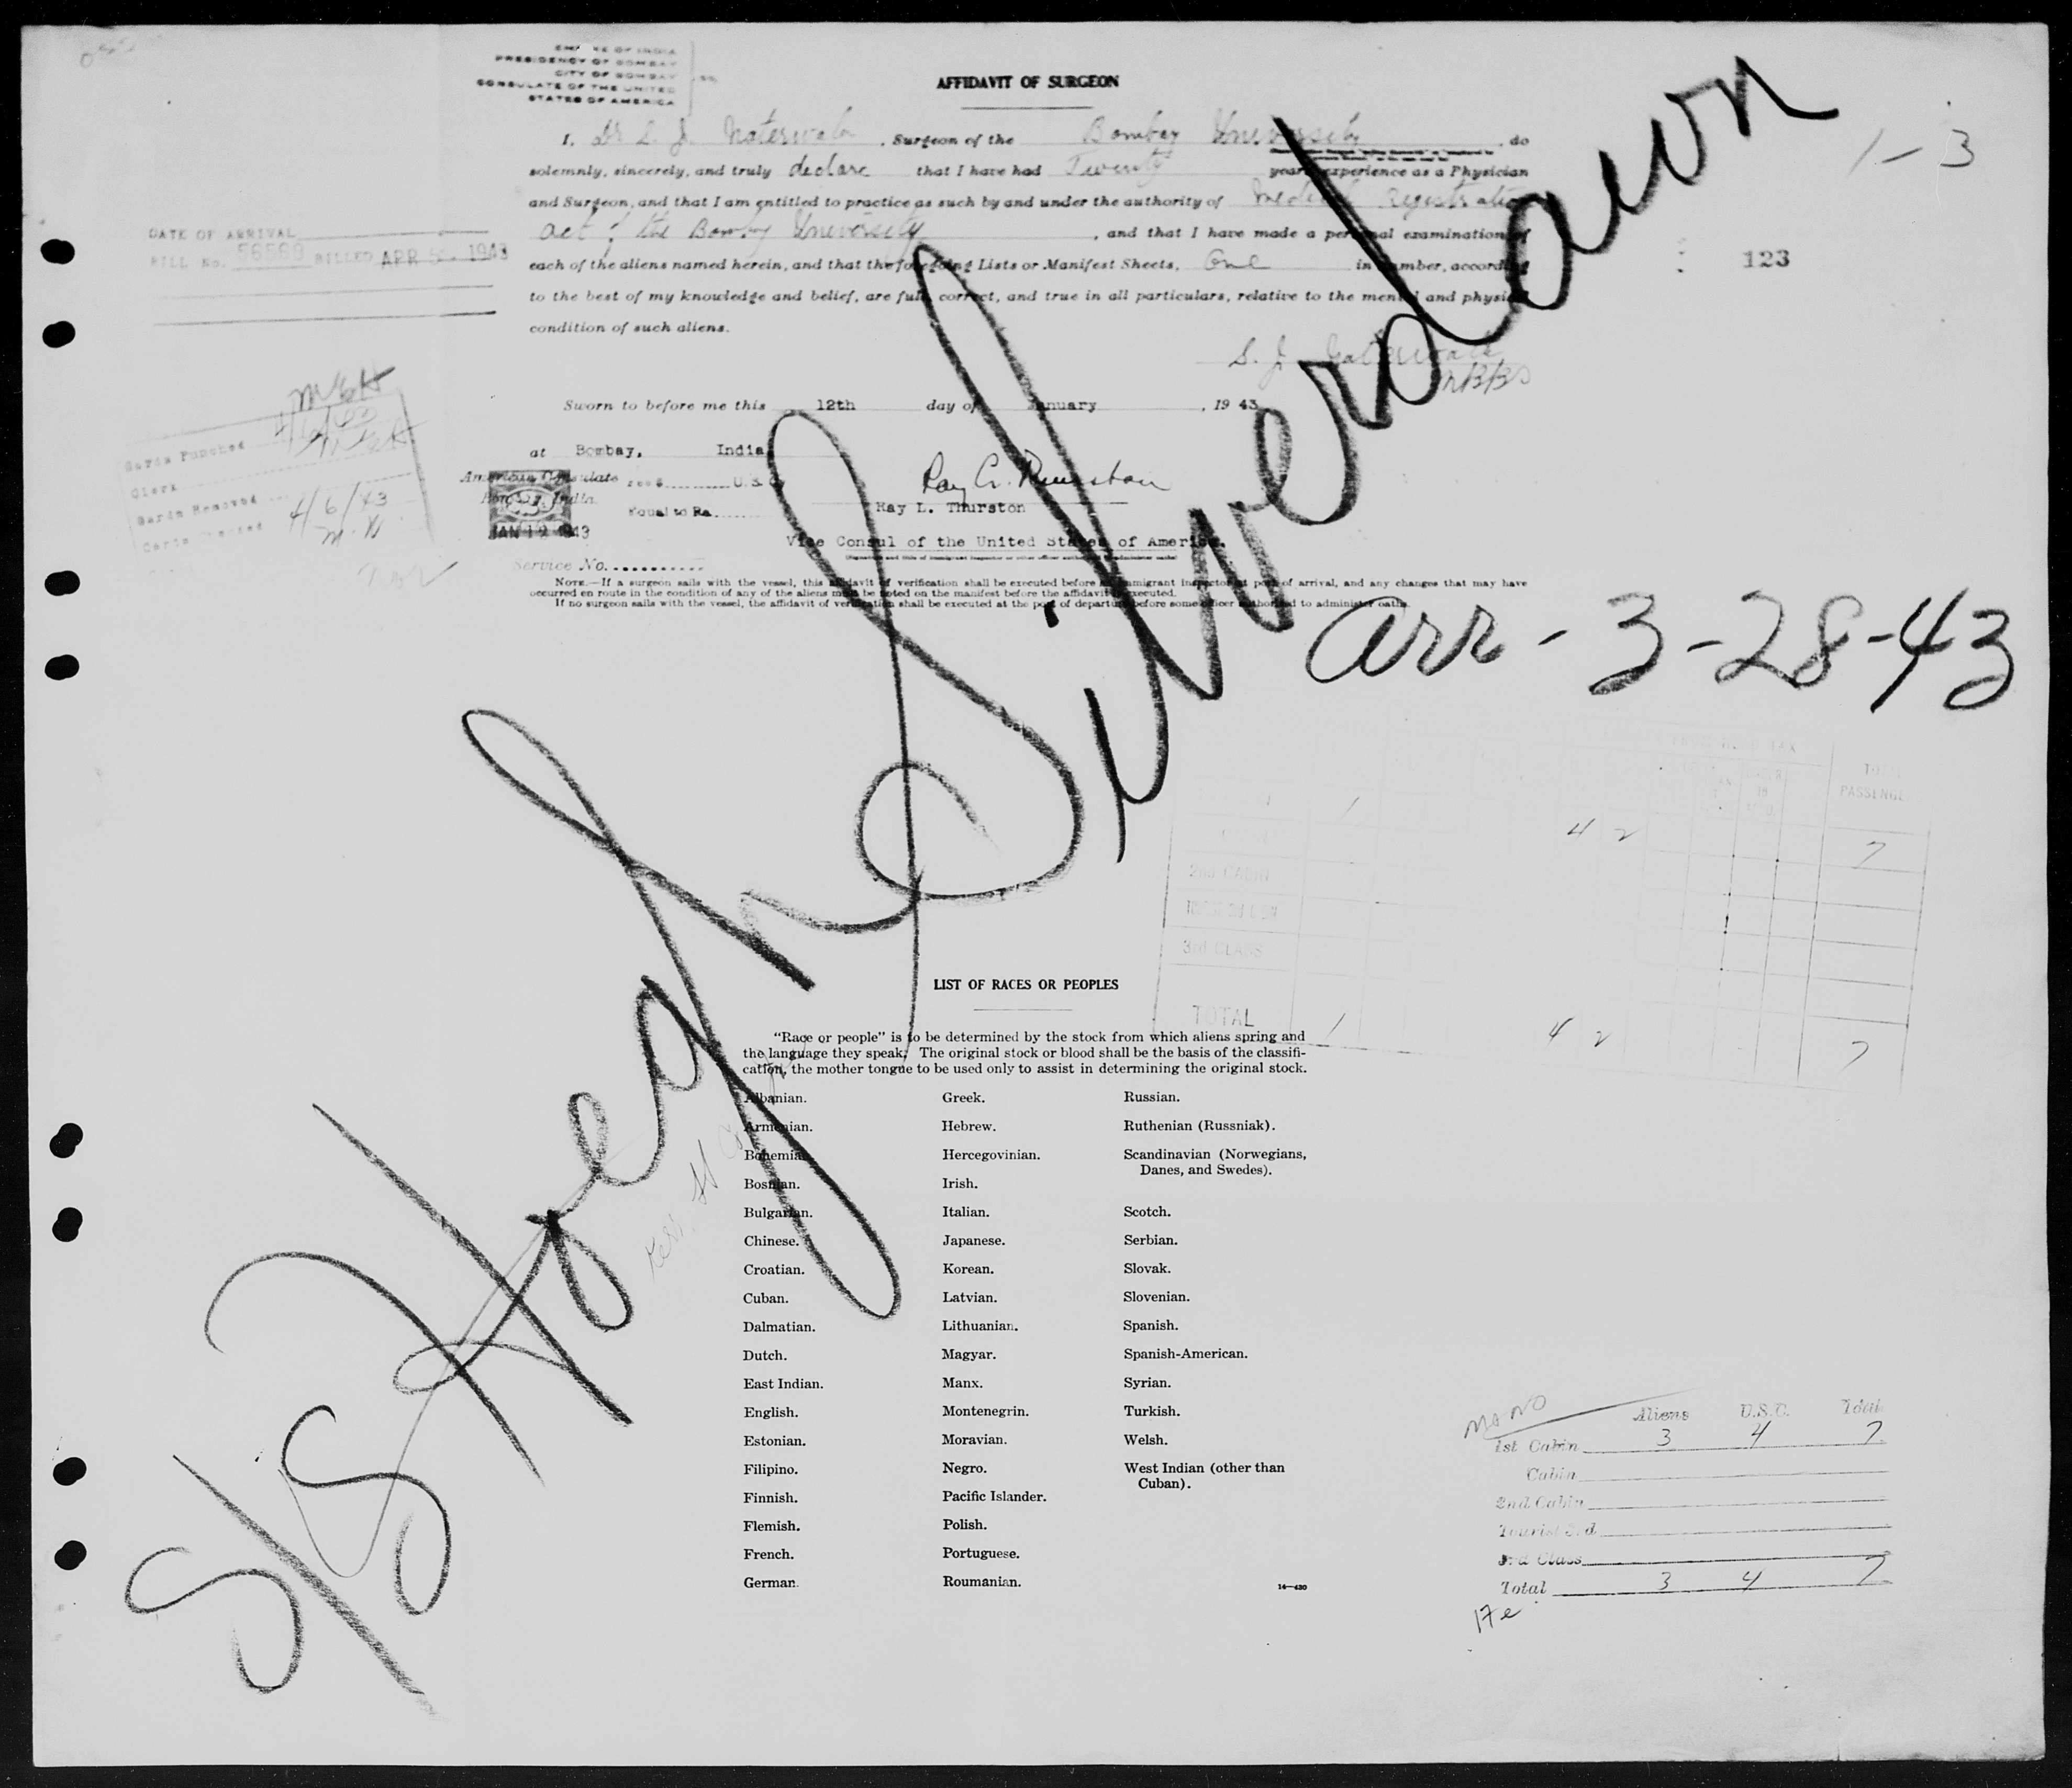 EMPIRE OF INDIA
PRESIDENCY OF BOMBAY
CITY OF BOMBAY
CONSULATE OF THE UNITED
STATES OF AMERICA
SS
AFFIDAVIT OF SURGEON
1-3
I, Dr S. J. , Surgeon of the Bombay University, do
solemnly, sincerely, and truly declare that I have had Twenty years experience as a Physician
and Surgeon, and that I am entitled to practice as such by and under the authority of Medical Registration
act of the Bombay University, and that I have made a personal examination of
each of the aliens named herein, and that the foregoing Lists or Manifest Sheets, One in number, according
to the best of my knowledge and belief, are full, correct, and true in all particulars, relative to the mental and physical
condition of such aliens.
DATE OF ARRIVAL
BILL No. 56569 BILLED APR 5 1943
123
S. J.
MBBS
Sworn to before me this 12th day of January, 19 43
at Bombay, India
American Consulate
Bombay, India.
JAN 12 1943
Fee $ U.S.
Equal to Rs.
Service No.
Ray L. Thurston
Ray L. Thurston
Vice Consul of the United States of America.
Cards Punched
Clerk
Cards Removed
4/6/43
M. H.
NOTE.—If a surgeon sails with the vessel, this affidavit of verification shall be executed before an immigrant inspector at port of arrival, and any changes that may have
occurred en route in the condition of any of the aliens must be noted on the manifest before the affidavit is executed.
If no surgeon sails with the vessel, the affidavit of verification shall be executed at the port of departure before some officer authorized to administer oaths.
S/S Hoegh Silverdawn
arr - 3-28-43
HEAD TAX
TOTAL
PASSENGE
1 4 2 7
2nd CABIN
3rd CLASS
TOTAL 1 4 2 7
LIST OF RACES OR PEOPLES
"Race or people" is to be determined by the stock from which aliens spring and
the language they speak. The original stock or blood shall be the basis of the classifi-
cation, the mother tongue to be used only to assist in determining the original stock.
Albanian.
Armenian.
Bohemian.
Bosnian.
Bulgarian.
Chinese.
Croatian.
Cuban.
Dalmatian.
Dutch.
East Indian.
English.
Estonian.
Filipino.
Finnish.
Flemish.
French.
German.
Greek.
Hebrew.
Hercegovinian.
Irish.
Italian.
Japanese.
Korean.
Latvian.
Lithuanian.
Magyar.
Manx.
Montenegrin.
Moravian.
Negro.
Pacific Islander.
Polish.
Portuguese.
Roumanian.
Russian.
Ruthenian (Russniak).
Scandinavian (Norwegians,
Danes, and Swedes).
Scotch.
Serbian.
Slovak.
Slovenian.
Spanish.
Spanish-American.
Syrian.
Turkish.
Welsh.
West Indian (other than
Cuban).
14—430
Aliens U.S.C. Total
1st Cabin 3 4 7
Cabin
2nd Cabin
Tourist 3rd
3rd Class
Total 3 4 7
17e